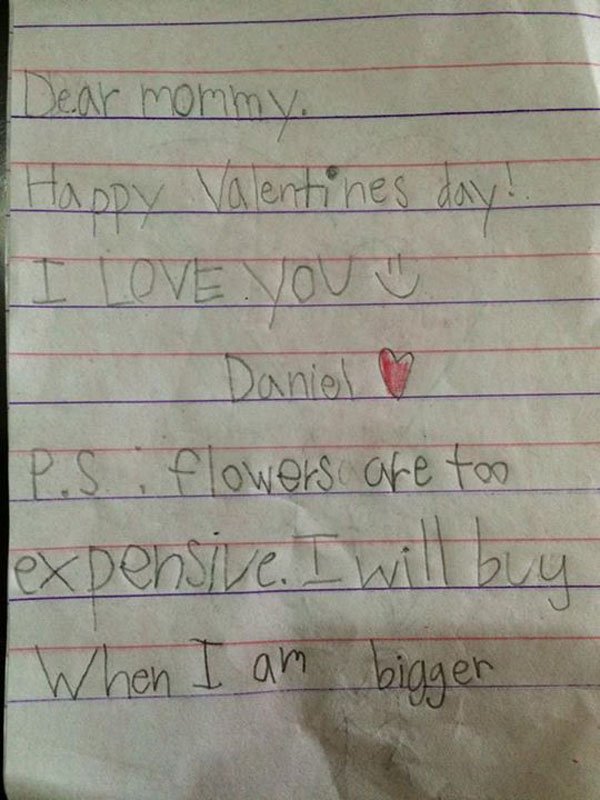 Dear mommy.
Happy Valentines day!
I LOVE YOU
Daniel
P.S. : flowers are too
expensive. I will buy
When I am bigger